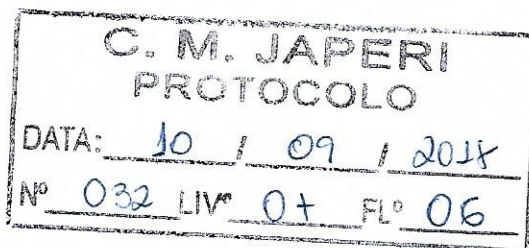 C. M. JAPERI
PROTOCOLO
DATA: 10 / 09 / 2018
Nº 032 LIVº 07 FLº 06